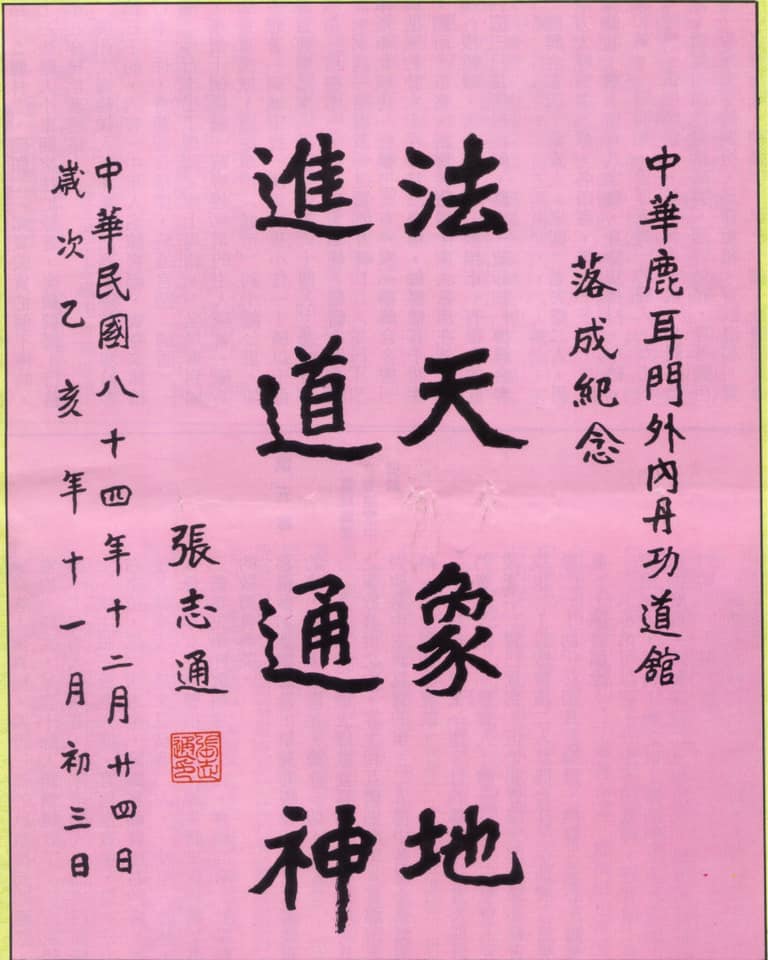 中華鹿耳門外內丹功道舘
落成紀念
法天象地
進道通神
張志通
張志通印
中華民國八十四年十二月廿四日
歲次乙亥年十一月初三日